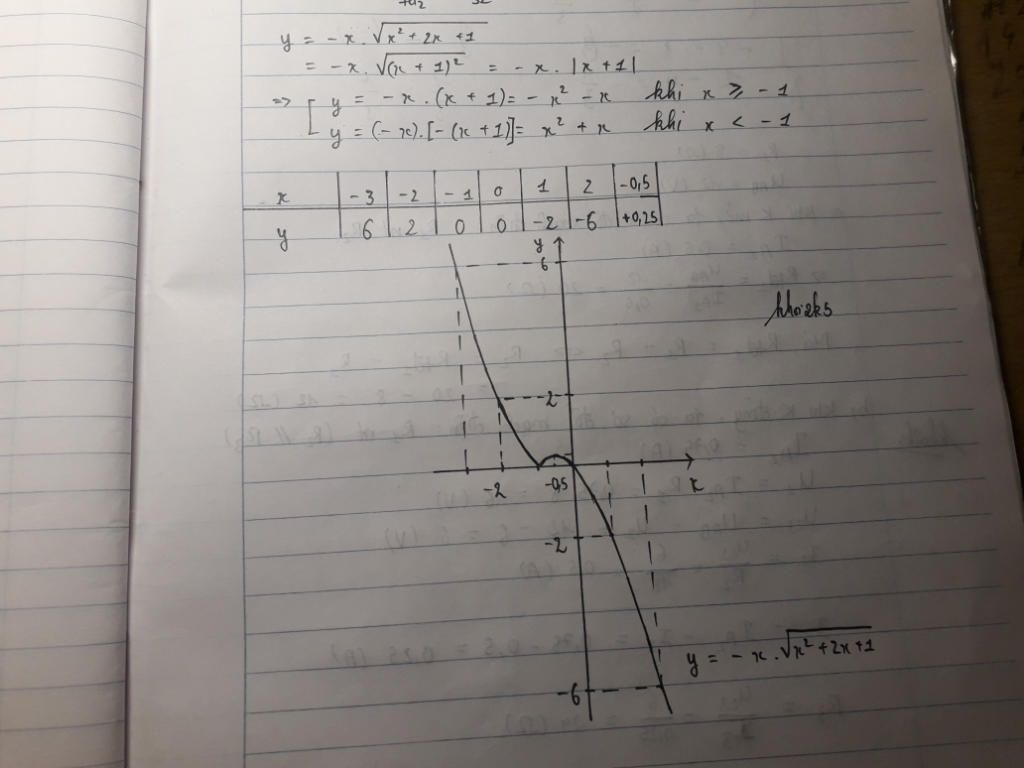 y = -x.√(x² + 2x + 1)
= -x.√((x + 1)²) = -x.|x+1|
=> [ y = -x.(x + 1) = -x² - x khi x ≥ -1
y = (-x).[-(x + 1)] = x² + x khi x < -1
x | -3 | -2 | -1 | 0 | 1 | 2 | -0,5
y | 6 | 2 | 0 | 0 | -2 | -6 | +0,25
y
6
khoi2k5
2
-2 -0,5 x
-2
y = -x.√(x² + 2x + 1)
-6